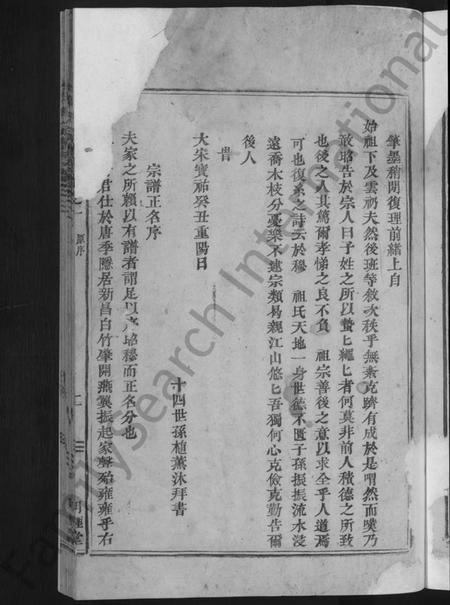 筆墨稍閒復理前緒上自
始祖下及雲礽夫然後班等敘次秩乎無紊克躋有成於是喟然而嘆乃
敢昭告於宗人曰子姓之所以蟄匕繩匕者何莫非前人積德之所致
也後之人其篤爾孝悌之良不負 祖宗善後之意以求全乎人道焉
可也復系之詩云於穆 祖氏天地一身世德不匱子孫振振流水浸
遠喬木枝分憂樂不逮宗類易親江山悠匕吾獨何心克儉克勤告爾
後人
旹
大宋寶祐癸丑重陽日
十四世孫植薰沐拜書
宗譜正名序
夫家之所賴以有譜者謂足以序昭穆而正名分也
君仕於唐季隱居新昌白竹肇開燕翼振起家聲殆雍雍乎右
原序
二
FamilySearch International